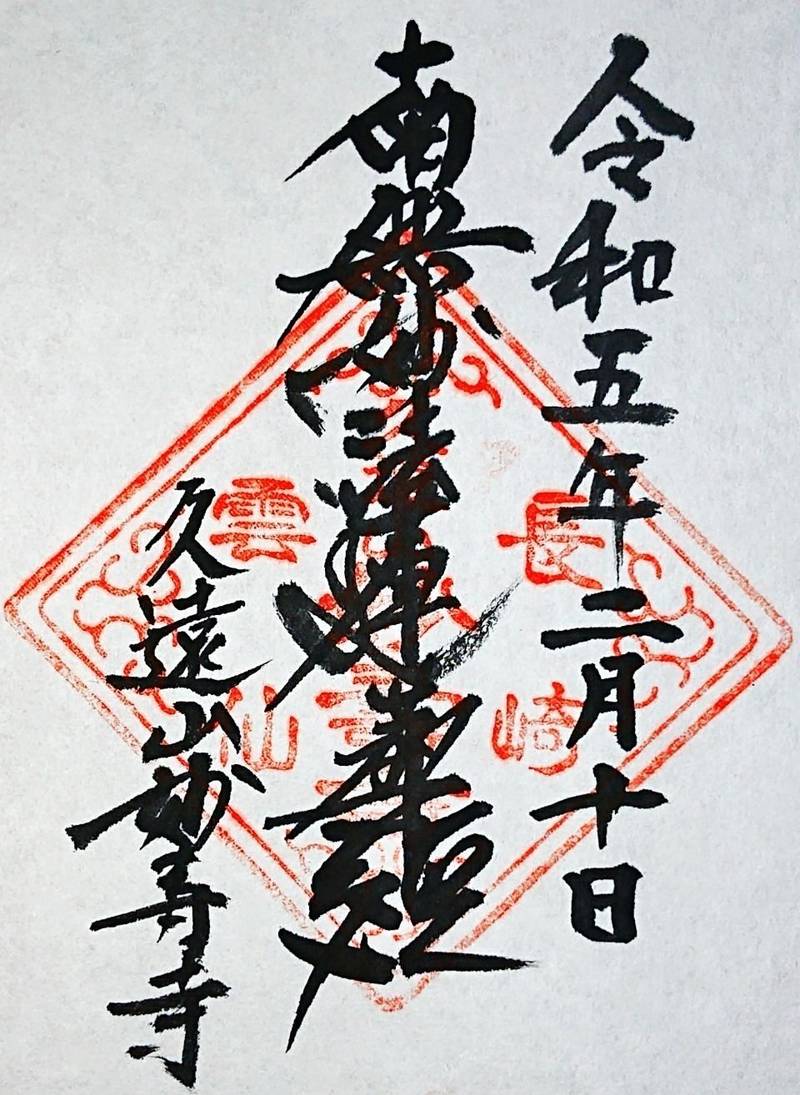 令和五年二月十日
南無妙法蓮華經
久遠山妙寿寺
長崎
雲仙